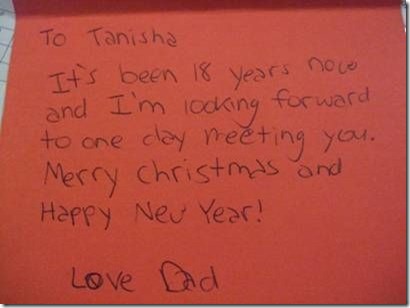 To Tanisha
It's been 18 years now
and I'm looking forward
to one day meeting you.
Merry christmas and
Happy New Year!
Love Dad